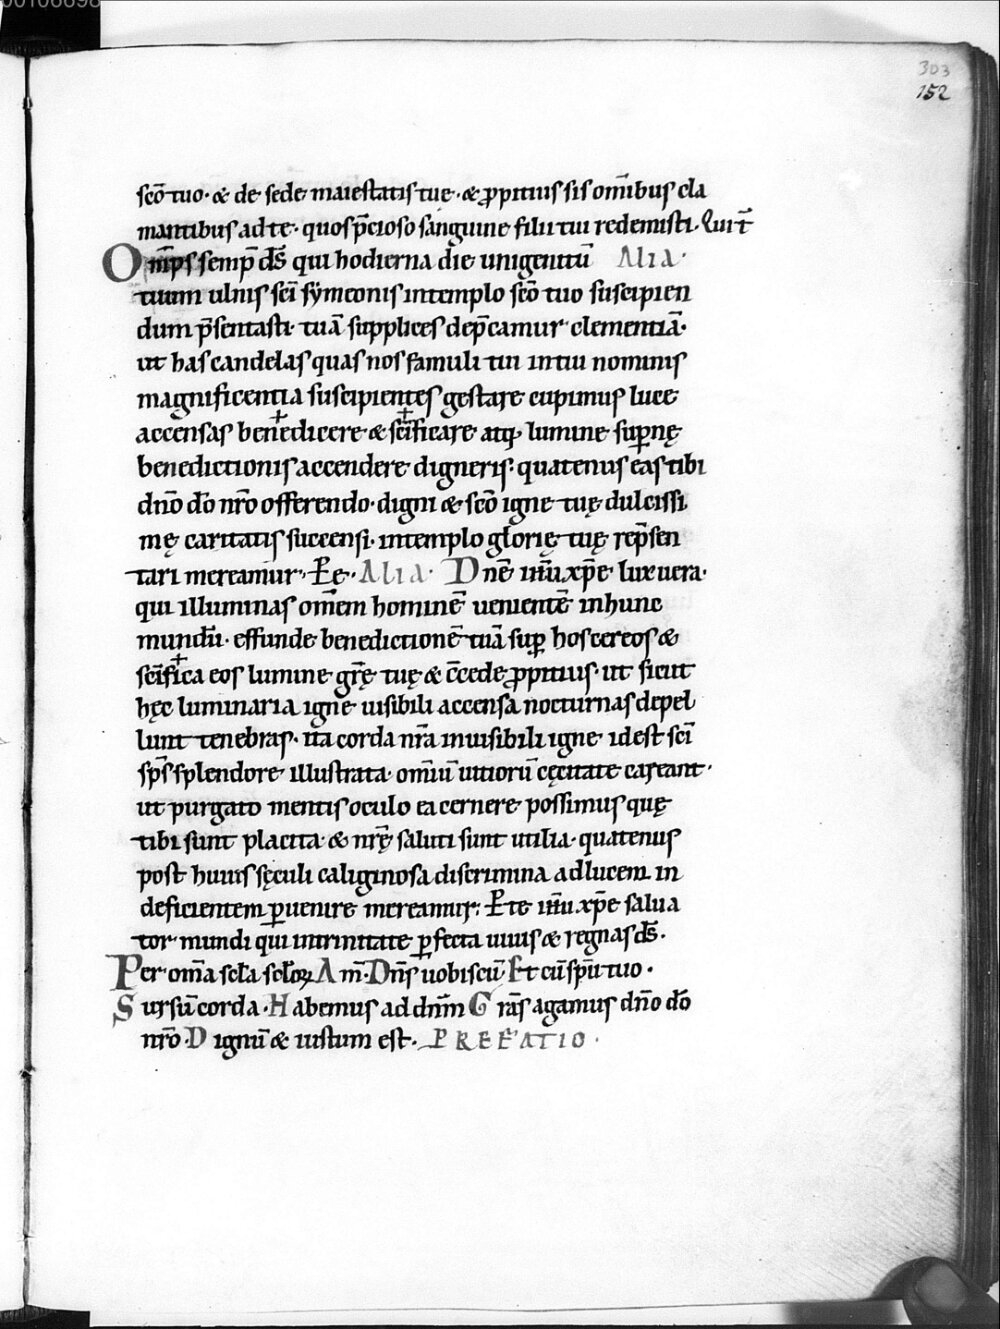 00106698
303
152
scō tuo· & de sede maiestatis tue· & ꝓpitius sis om̄ibus cla
mantibus ad te· quos p̄cioso sanguine filii tui redemisti· Qui t̄
Om̄ps semp̄ d̄s qui hodierna die unigenitū Alia·
tuum ulnis sc̄i sẏmeonis in templo scō tuo suscipien
dum p̄sentasti· tuā supplices dep̄camur clementiā·
ut has candelas quas nos famuli tui in tui nominis
magnificentia suscipientes gestare cupimus luce
accensas bene+dicere & sc̄i+ficare atq; lumine sup̄nę
benedictionis accendere digneris: quatenus eas tibi
dn̄o dō nr̄o offerendo· digni & scō igne tuę dulcissi
mę caritatis succensi· in templo glorię tuę rep̄sen
tari mereamur· Pe· Alia· Dnē ih̄u xp̄e lux uera·
qui illuminas om̄em hominē uenientē in hunc
mundū· effunde benedictionē tuā sup̄ hos cereos &
sc̄i+fica eos lumine gr̄ę tuę & c̄cede ꝓpitius· ut sicut
hęc luminaria igne uisibili accensa nocturnas depel
lunt tenebras· ita corda nr̄a inuisibili igne· id est sc̄i
sp̄s splendore illustrata· om̄iū uitiorū cęcitate careant·
ut purgato mentis oculo ea cernere possimus quę
tibi sunt placita· & nr̄ę saluti sunt utilia· quatenus
post huius sęculi caliginosa discrimina ad lucem in
deficientem ꝑuenire mereamur: P te ih̄u xp̄e salua
tor mundi qui in trinitate ꝑfecta uiuis & regnas d̄s·
Per om̄a sc̄la sc̄loꝝ Am̄· Dn̄s uobiscū Et cū sp̄u tuo·
Sursū corda· Habemus ad dn̄m Gr̄as agamus dn̄o dō
nr̄o· Dignū & iustum est· PREFATIO·